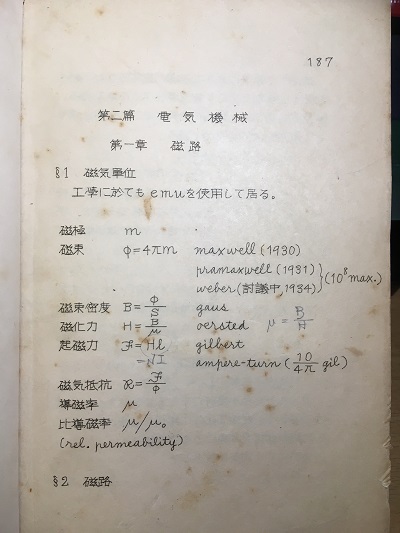 187
第二篇 電気機械
第一章 磁路
§1 磁気單位
工学に於てもemuを使用して居る。
磁極 m
磁束 φ=4πm maxwell (1930)
pramaxwell (1931)
weber (討議中,1934) } (10⁸ max.)
磁束密度 B=φ/S gaus
磁化力 H=B/μ oersted μ=B/H
起磁力 ℱ=Hl gilbert
=NI ampere-turn (10/4π gil)
磁気抵抗 ℛ=ℱ/φ
導磁率 μ
比導磁率 μ/μ₀
(rel. permeability)
§2 磁路